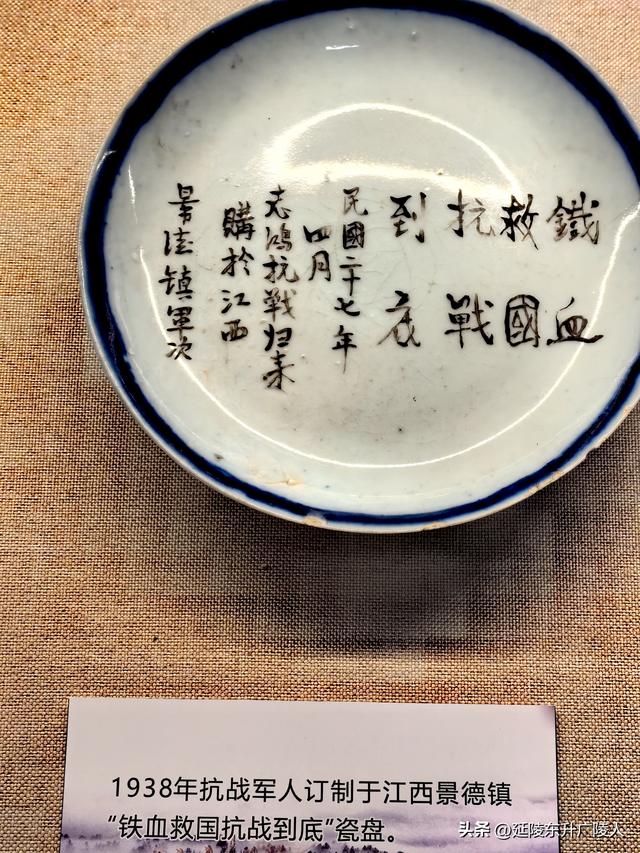 鐵血
救國
抗戰
到底
民國二十七年
四月
志鴻抗戰归来
購於江西
景德镇軍次
1938年抗战军人订制于江西景德镇
“铁血救国抗战到底”瓷盘。
头条 @延陵东升广陵人